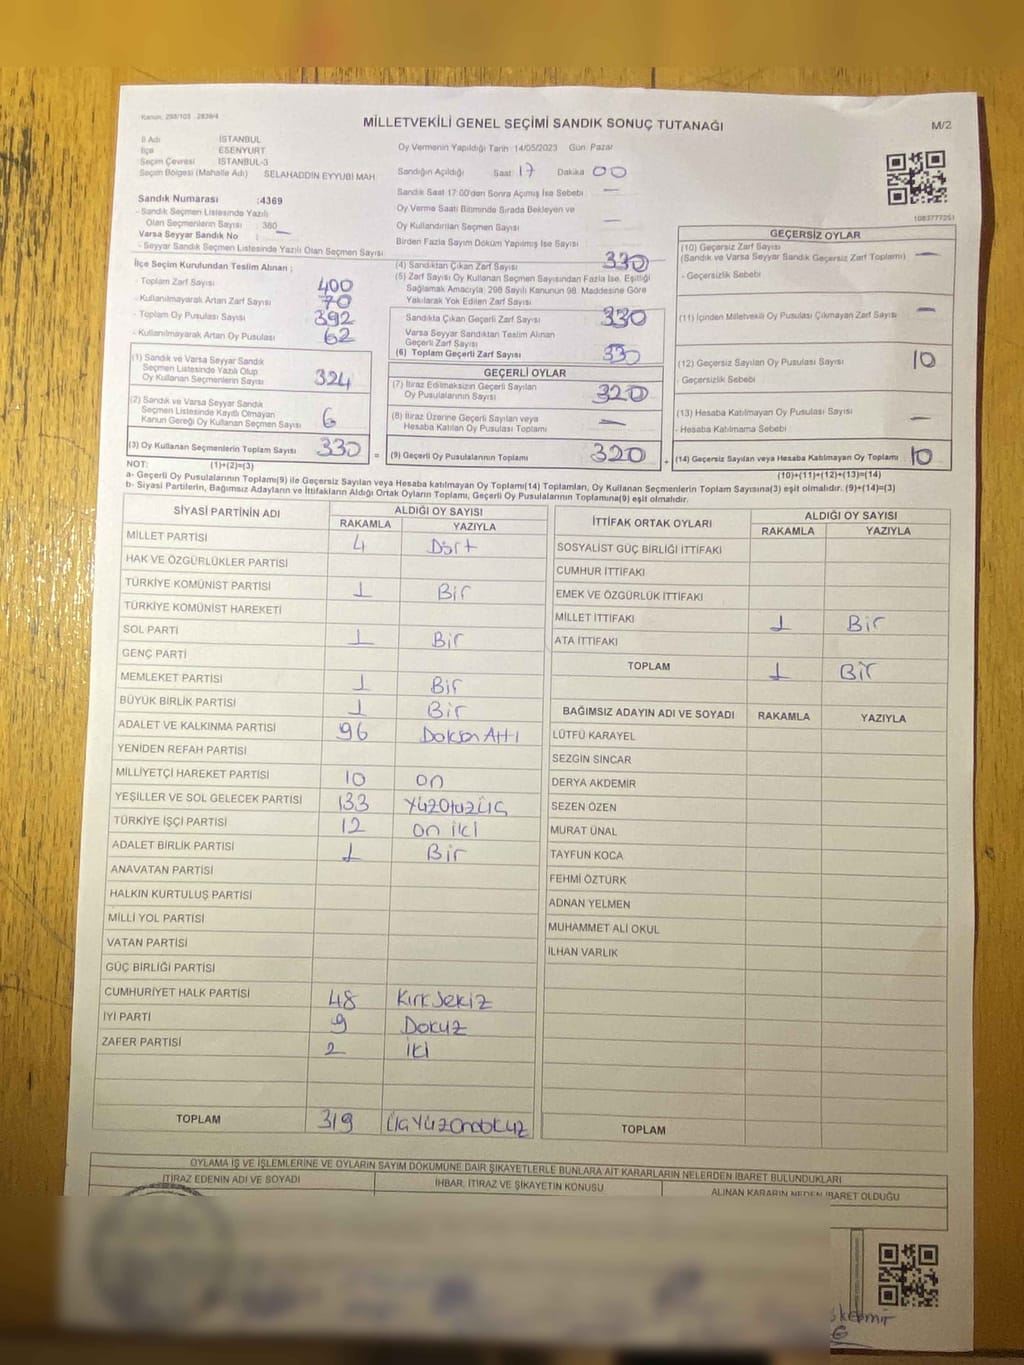 Kanun: 298/105 - 2839/4
MİLLETVEKİLİ GENEL SEÇİMİ SANDIK SONUÇ TUTANAĞI
M/2
İl Adı İSTANBUL
İlçe ESENYURT
Seçim Çevresi İSTANBUL-3
Seçim Bölgesi (Mahalle Adı) SELAHADDİN EYYUBİ MAH.
Sandık Numarası :4369
- Sandık Seçmen Listesinde Yazılı
Olan Seçmenlerin Sayısı : 380
Varsa Seyyar Sandık No : —
- Seyyar Sandık Seçmen Listesinde Yazılı Olan Seçmen Sayısı
Oy Vermenin Yapıldığı Tarih :14/05/2023 Gün: Pazar
Sandığın Açıldığı Saat 17 Dakika 00
Sandık Saat 17:00'den Sonra Açılmış İse Sebebi —
Oy Verme Saati Bitiminde Sırada Bekleyen ve
Oy Kullandırılan Seçmen Sayısı —
Birden Fazla Sayım Döküm Yapılmış İse Sayısı
1083777251
İlçe Seçim Kurulundan Teslim Alınan ;
- Toplam Zarf Sayısı 400
- Kullanılmayarak Artan Zarf Sayısı 70
- Toplam Oy Pusulası Sayısı 392
- Kullanılmayarak Artan Oy Pusulası 62
(1) Sandık ve Varsa Seyyar Sandık
Seçmen Listesinde Yazılı Olup
Oy Kullanan Seçmenlerin Sayısı 324
(2) Sandık ve Varsa Seyyar Sandık
Seçmen Listesinde Kayıtlı Olmayan
Kanun Gereği Oy Kullanan Seçmen Sayısı 6
(3) Oy Kullanan Seçmenlerin Toplam Sayısı 330
(1)+(2)=(3)
(4) Sandıktan Çıkan Zarf Sayısı 330
(5) Zarf Sayısı Oy Kullanan Seçmen Sayısından Fazla İse, Eşitliği
Sağlamak Amacıyla; 298 Sayılı Kanunun 98. Maddesine Göre
Yakılarak Yok Edilen Zarf Sayısı
Sandıkta Çıkan Geçerli Zarf Sayısı 330
Varsa Seyyar Sandıktan Teslim Alınan
Geçerli Zarf Sayısı
(6) Toplam Geçerli Zarf Sayısı 330
GEÇERLİ OYLAR
(7) İtiraz Edilmeksizin Geçerli Sayılan
Oy Pusulalarının Sayısı 320
(8) İtiraz Üzerine Geçerli Sayılan veya
Hesaba Katılan Oy Pusulası Toplamı —
= (9) Geçerli Oy Pusulalarının Toplamı 320
GEÇERSİZ OYLAR
(10) Geçersiz Zarf Sayısı
(Sandık ve Varsa Seyyar Sandık Geçersiz Zarf Toplamı) —
- Geçersizlik Sebebi
(11) İçinden Milletvekili Oy Pusulası Çıkmayan Zarf Sayısı —
(12) Geçersiz Sayılan Oy Pusulası Sayısı 10
- Geçersizlik Sebebi
(13) Hesaba Katılmayan Oy Pusulası Sayısı —
- Hesaba Katılmama Sebebi
+ (14) Geçersiz Sayılan veya Hesaba Katılmayan Oy Toplamı 10
(10)+(11)+(12)+(13)=(14)
NOT:
a- Geçerli Oy Pusulalarının Toplamı(9) ile Geçersiz Sayılan veya Hesaba katılmayan Oy Toplamı(14) Toplamları, Oy Kullanan Seçmenlerin Toplam Sayısına(3) eşit olmalıdır. (9)+(14)=(3)
b- Siyasi Partilerin, Bağımsız Adayların ve İttifakların Aldığı Ortak Oyların Toplamı, Geçerli Oy Pusulalarının Toplamına(9) eşit olmalıdır.
SİYASİ PARTİNİN ADI ALDIĞI OY SAYISI
RAKAMLA YAZIYLA
MİLLET PARTİSİ 4 Dört
HAK VE ÖZGÜRLÜKLER PARTİSİ
TÜRKİYE KOMÜNİST PARTİSİ 1 Bir
TÜRKİYE KOMÜNİST HAREKETİ
SOL PARTİ 1 Bir
GENÇ PARTİ
MEMLEKET PARTİSİ 1 Bir
BÜYÜK BİRLİK PARTİSİ 1 Bir
ADALET VE KALKINMA PARTİSİ 96 Doksan Altı
YENİDEN REFAH PARTİSİ
MİLLİYETÇİ HAREKET PARTİSİ 10 on
YEŞİLLER VE SOL GELECEK PARTİSİ 133 YüzOtuzÜç
TÜRKİYE İŞÇİ PARTİSİ 12 on iki
ADALET BİRLİK PARTİSİ 1 Bir
ANAVATAN PARTİSİ
HALKIN KURTULUŞ PARTİSİ
MİLLİ YOL PARTİSİ
VATAN PARTİSİ
GÜÇ BİRLİĞİ PARTİSİ
CUMHURİYET HALK PARTİSİ 48 Kırksekiz
İYİ PARTİ 9 Dokuz
ZAFER PARTİSİ 2 iki
TOPLAM 319 ÜçYüzOndokuz
İTTİFAK ORTAK OYLARI ALDIĞI OY SAYISI
RAKAMLA YAZIYLA
SOSYALİST GÜÇ BİRLİĞİ İTTİFAKI
CUMHUR İTTİFAKI
EMEK VE ÖZGÜRLÜK İTTİFAKI
MİLLET İTTİFAKI 1 Bir
ATA İTTİFAKI
TOPLAM 1 Bir
BAĞIMSIZ ADAYIN ADI VE SOYADI RAKAMLA YAZIYLA
LÜTFÜ KARAYEL
SEZGİN SİNCAR
DERYA AKDEMİR
SEZEN ÖZEN
MURAT ÜNAL
TAYFUN KOCA
FEHMİ ÖZTÜRK
ADNAN YELMEN
MUHAMMET ALİ OKUL
İLHAN VARLIK
TOPLAM
OYLAMA İŞ VE İŞLEMLERİNE VE OYLARIN SAYIM DÖKÜMÜNE DAİR ŞİKAYETLERLE BUNLARA AİT KARARLARIN NELERDEN İBARET BULUNDUKLARI
İTİRAZ EDENİN ADI VE SOYADI İHBAR, İTİRAZ VE ŞİKAYETİN KONUSU ALINAN KARARIN NEDEN İBARET OLDUĞU